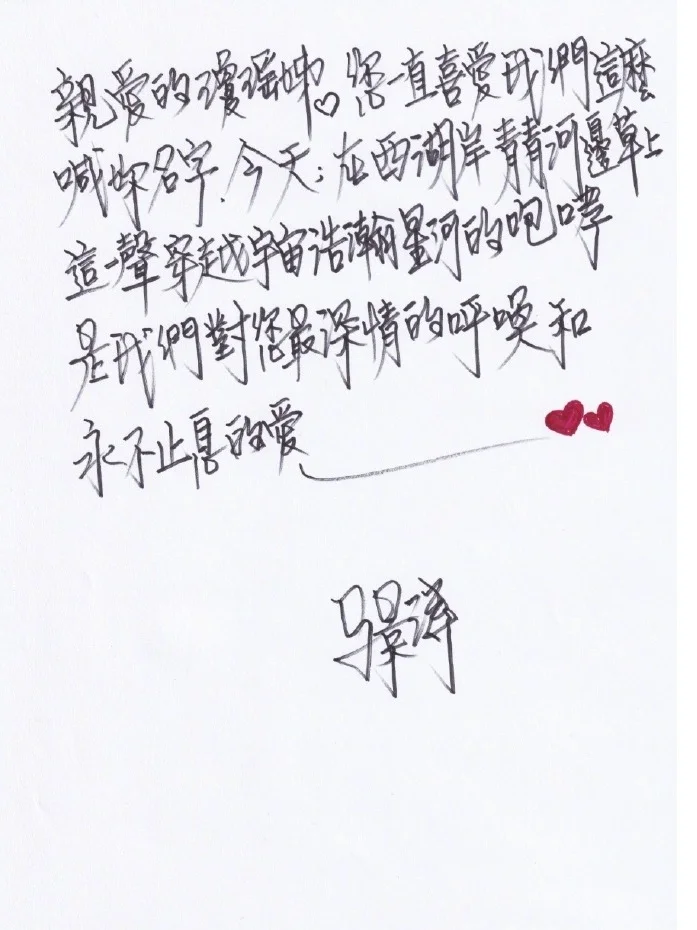 親愛的瓊瑤姊♡您一直喜愛我們這麼
喊妳名字.今天;在西湖岸青青河邊草上
這一聲穿越宇宙浩瀚星河的咆哮
是我們對您最深情的呼喚和
永不止息的愛